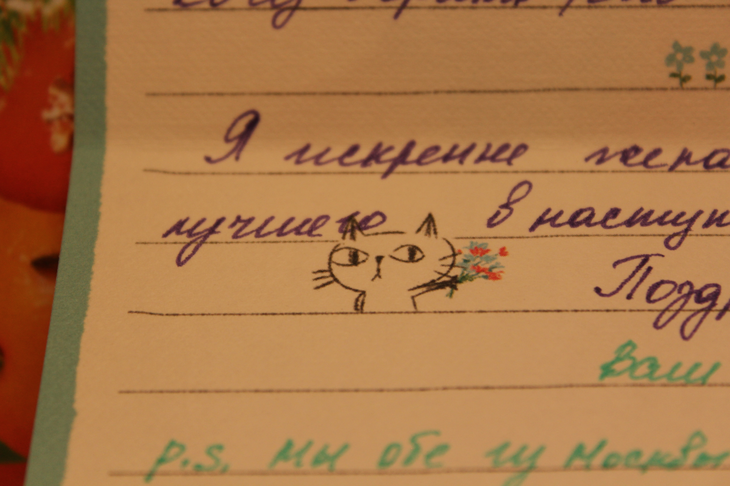 Я искренне жела
лучшего в наступ
Позд
Ваш
p.s. мы обе из Москвы